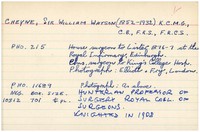 CHEYNE, SIR WILLIAM WATSON (1852-1932) K.C.M.G.,
C.B., F.R.S., F.R.C.S.
PHO. 215 House surgeon to Lister 1876-7 at the
Royal Infirmary, Edinburgh,
surgeon to King's College Hosp.
Photograph: Elliott & Fry, London.
PHO. 11689 Photograph: As above
NEG. 2128. HUNTERIAN PROFESSOR OF
10312 701 SURGERY ROYAL COLL. OF
SURGEONS.
KNIGHTED IN 1908